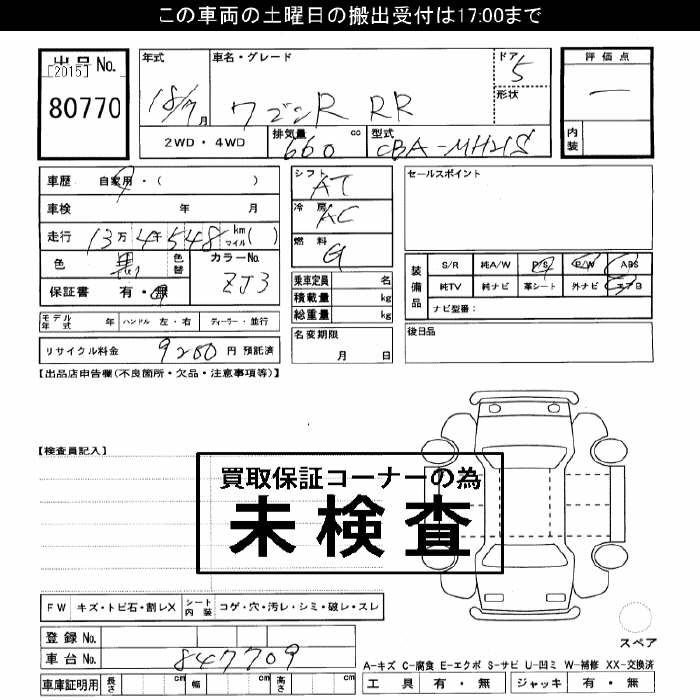 この車両の土曜日の搬出受付は17:00まで
出品No.
[2015]
80770
年式
18/7月
車名・グレード
ワゴンR RR
ドア
5
形状
評価点
―
内装
2WD・4WD
排気量
660 cc
型式
CBA-MH21S
車歴 自家用・( )
車検 年 月
走行 13万4千548 km マイル( )
色 黒 色替
カラーNo.
ZJ3
保証書 有・無
モデル年式 年 ハンドル 左・右 ディーラー・並行
リサイクル料金 9280円 預託済
シフト
AT
冷房
AC
燃料
G
乗車定員 名
積載量 kg
総重量 kg
名変期限
月 日
セールスポイント
装備品
S/R 純A/W P/S P/W ABS
純TV 純ナビ 革シート 外ナビ エアB
ナビ型番:
後日品
【出品店申告欄(不良箇所・欠品・注意事項等)】
【検査員記入】
買取保証コーナーの為
未検査
FW キズ・トビ石・割レX シート内装 コゲ・穴・汚レ・シミ・破レ・スレ
登録No.
車台No. 847709
車庫証明用 長さ cm 幅 cm 高さ cm
スペア
A-キズ C-腐食 E-エクボ S-サビ U-凹ミ W-補修 XX-交換済
工具 有・無 ジャッキ 有・無